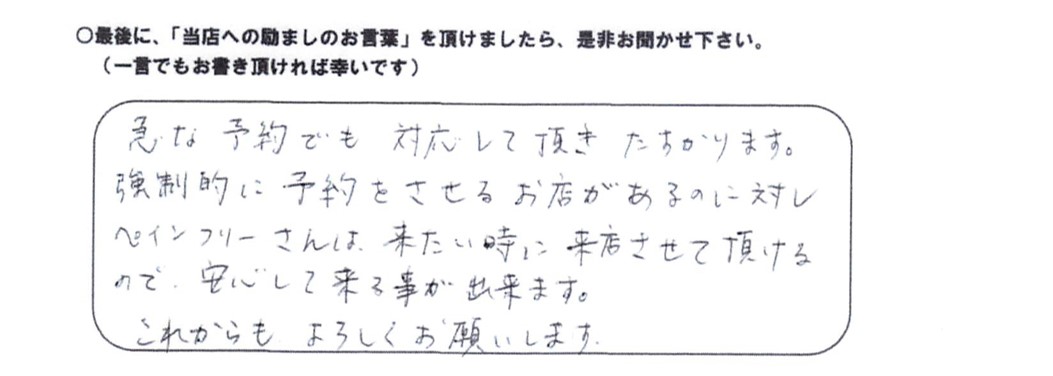 ○最後に、「当店への励ましのお言葉」を頂けましたら、是非お聞かせ下さい。
（一言でもお書き頂ければ幸いです）
急な予約でも 対応して頂き たすかります。
強制的に予約をさせるお店があるのに対し
ペインフリーさんは、来たい時に来店させて頂ける
ので、安心して来る事が出来ます。
これからも よろしくお願いします.